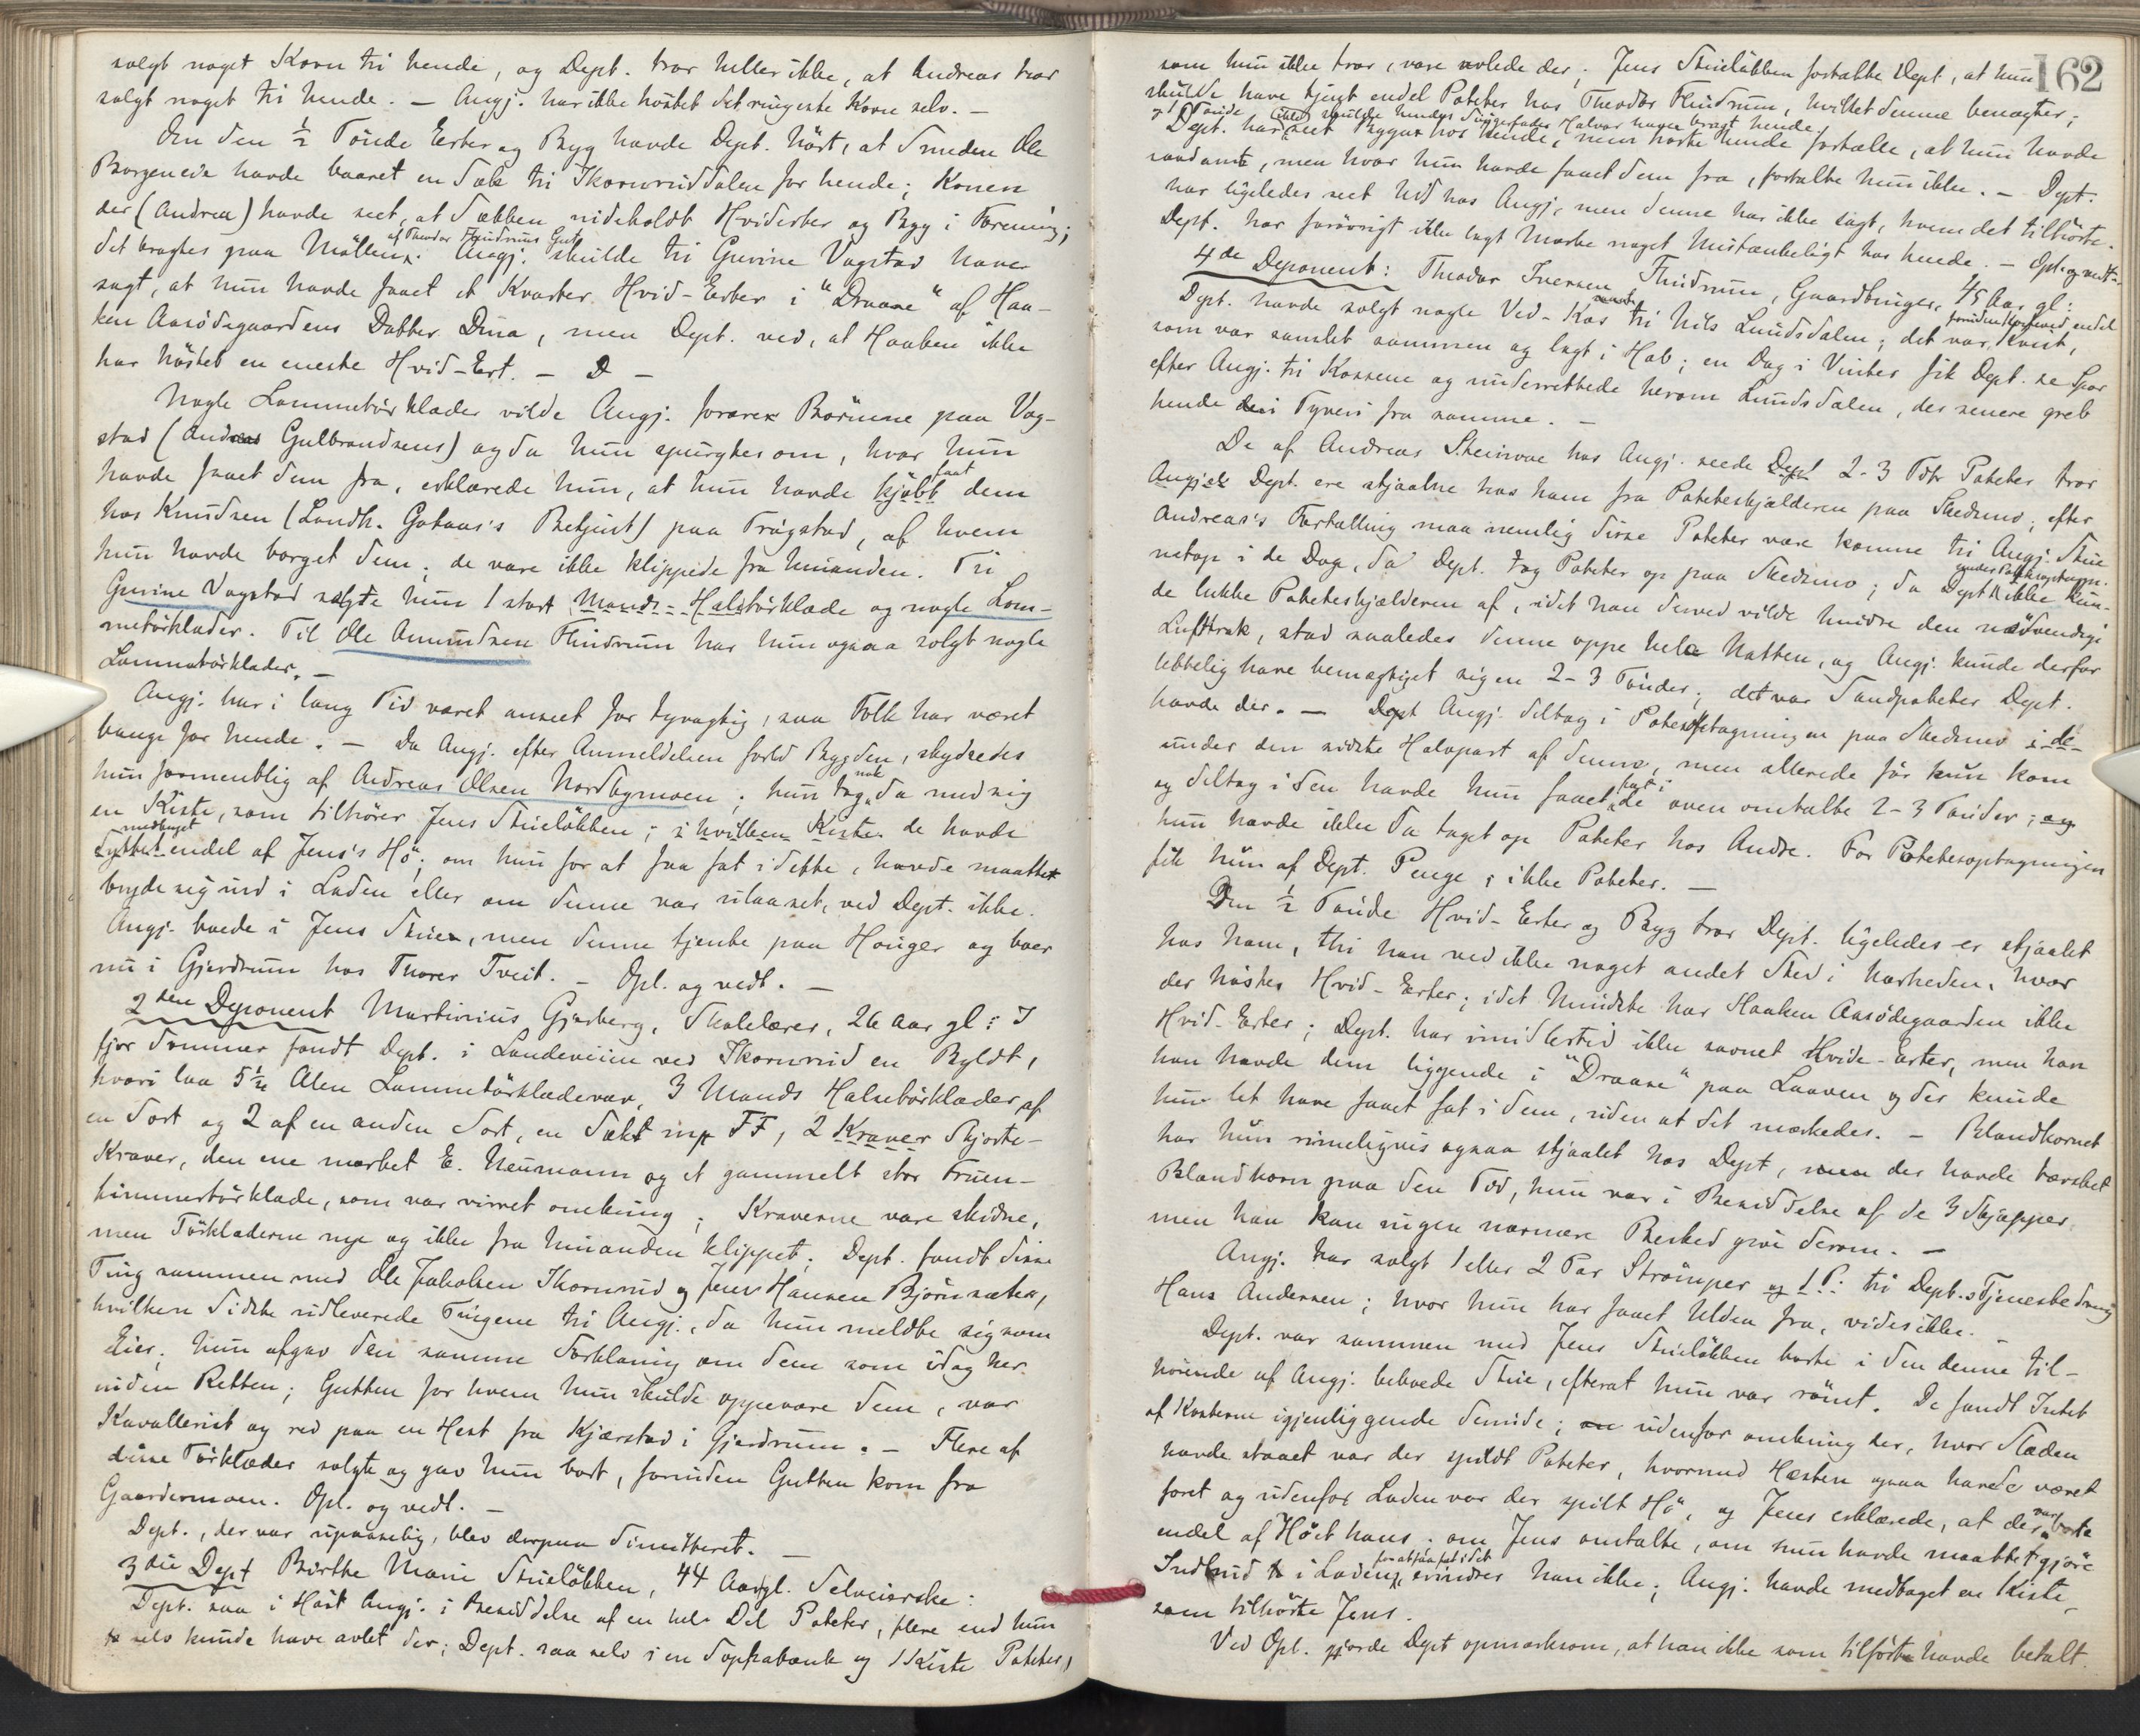 solgt noget Korn til hende, og Dept. tror heller ikke, at Andreas har
solgt noget til hende. – Angj. har ikke høstet det ringeste Korn selv. –
Om den ½ Tønde Erter og Byg havde Dept. hørt, at Smeden Ole
Borgeneie havde baaret en Sæk til Skornruddalen for hende; Konen
der (Andrea) havde seet, at Sækken indeholdt Hviderter og Byg i Forening;
det bragtes paa Møllen af Theodor Flindrums Gut. Angj. skulde til Gurine Vagstad have
sagt, at hun havde faaet et Kvarter Hvid-Erter i "Draase" af Haa-
ken Aasødegaardens Datter Dina, men Dept. ved, at Haaken ikke
har høstet en eneste Hvid-Ert. –
Nogle Lommetørklæder vilde Angj. forære Børnene paa Vag-
stad (Gulbrandsens) og da hun spurgtes om, hvor hun
havde faaet dem fra, erklærede hun, at hun havde kjøbt faat dem
hos Knudsen (Landh. Gotaas's Betjent) paa Trøgstad, af hvem
hun havde borget dem; de vare ikke klippede fra hinanden. Til
Gurine Vagstad solgte hun 1 stort Mands-Halstørklæde og nogle Lom-
metørklæder. Til Ole Amundsen Flindrum har hun ogsaa solgt nogle
Lommetørklæder. –
Angj. har i lang Tid været anseet for tyvagtig, saa Folk har været
bange for hende. – Da Angj. efter Anmeldelsen forlod Bygden, skydsedes
hun formentlig af Andreas Olsen Nordbymoen; hun tog nok da med sig
en Kiste, som tilhører Jens Stueløkken; i hvilken Kiste de havde
medtaget endel af Jens's Hø; om hun for at faa fat i dette, havde maattet
bryde sig ind i Laden eller om denne var ulaaset, ved Dept. ikke.
Angj. boede i Jens Stuen, men denne tjente paa Hauger og boer
nu i Gjerdrum hos Thorer Tveit. – Opl. og vedt. –
2den Deponent Martinius Gjerberg, Skolelærer, 26 Aar gl: I
fjor Sommer fandt Dept. i Landeveien ved Skornrud en Byldt,
hvori laa 5½ Alen Lommetørklædevæv, 3 Mands Halstørklæder af
en Sort og 2 af en anden Sort, en Sæk mrk FF, 2 Kraver Skjorte-
Kraver, den ene mærket E. Neumann og et gammelt stor Fruen-
timmertørklæde, som var virret omkring; Kraverne vare skidne,
men Tørklæderne nye og ikke fra hinanden klippet; Dept. fandt disse
Ting sammen med Ole Jakobsen Skornrud og Jens Hansen Bjørnsæter,
hvilken Sidste udleverede Tingene til Angj., da hun meldte sig som
Eier; hun afgav den samme Forklaring om dem som idag her
inden Retten; Gutten for hvem hun skulde oppevare dem, var
Kavallerist og red paa en Hest fra Kjærstad i Gjerdrum. – Flere af
disse Tørklæder solgte og gav hun bort, forinden Gutten kom fra
Gardermoen. Opl. og vedt. –
Dept., der var upaaselig, blev derpaa dimitteret. –
3die Dept Birthe Marie Stueløkken, 44 Aar gl. Selveierske:
Dept. saa i Høst Angj. i Besiddelse af en hel Del Poteter, flere end hun
selv kunde have avlet der; Dept. saa selv i en Sopkabænk og 1 Kiste Poteter,
162
som hun ikke tror, vare avlede der; Jens Stueløkken fortalte Dept, at hun
skulde have kjøpt endel Poteter hos Theodor Flindrum, hvilket denne benægter;
og 1 Tønde skulde hendes Svigerfader Halvor have bragt hende.
Dept. har ikke seet Byggen hos hende, men hørte hende fortælle, at hun havde
saadant, men hvor hun havde faaet dem fra, fortalte hun ikke. – Dept.
har ligeledes seet Uld hos Angj., men denne har ikke sagt, hvem det tilhørte.
Dept. har forøvrigt ikke lagt Mærke noget Mistænkeligt hos hende. – Opl. og vedt.
4de Deponent: Theodor Iversen Flindrum, Gaardbruger, 45 Aar gl:
Dept. havde solgt nogle Ved-Kos til Nils Lundsdalen; det var Kvist, foruden endel
som var samlet sammen og lagt i Hob; en Dag i Vinter fik Dept. se Spor
efter Angj. til Kossene og underrettede herom Lundsdalen, der senere greb
hende i Tyveri fra samme. –
De af Andreas Steinroe hos Angj. seede Dept 2-3 Tdr Poteter tror
Angjck Dept. ere stjaalne hos ham fra Potetskjælderen paa Skedsmo; efter
Andreas's Fortælling maa nemlig disse Poteter være komne til Angj. Stue
netop i de Dage, da Dept. tog Poteter op paa Skedsmo; da Dept ikke kun-
de lukke Poteteskjælderen af, idet han derved vilde hindre den nødvendige
Lufttræk, stod saaledes denne oppe hele Natten, og Angj. kunde derfor
lettelig have bemægtiget sig en 2-3 Tønder; det var Sandpoteter Dept.
havde der. – Dept Angj. deltog i Potetoptagningen paa Skedsmo i de-
under den sidste Halvpart af denne, men allerede før hun kom
og deltog i den havde hun faaet fat i de oven omtalte 2-3 Tønder; og
hun havde ikke da taget op Poteter hos Andre. For Potetesoptagningen
fik hun af Dept. Penge, ikke Poteter. –
Den ½ Tønde Hvid-Erter og Byg tror Dept. ligeledes er stjaalet
hos ham, thi han ved ikke noget andet Sted i Nærheden, hvor
der høstes Hvid-Erter; idet Mindste har Haaken Aasødegaarden ikke
Hvid-Erter; Dept. har imidlertid ikke savnet Hvide-Erter, men han
han havde dem liggende i "Draase" paa Laaven og der kunde
hun let have faaet fat i dem, uden at det mærkedes. – Blandkornet
har hun rimeligvis ogsaa stjaalet hos Dept, der havde tærsket
Blandkorn paa den Tid, hun var i Besiddelse af de 3 Skjæpper
men han kan ingen nærmere Besked give derom. –
Angj. har solgt 1 eller 2 Par Strømper til Dept.s Tjenestedreng
Hans Andersen; hvor hun har faaet Ulden fra, vides ikke. –
Dept. var sammen med Jens Stueløkken borte i den denne til-
hørende af Angj. beboede Stue, efterat hun var rømt. De fandt Intet
af Kosterne igjenliggende derinde; udenfor omkring der, hvor Slæden
havde staaet var der spildt Poteter, hvormed Hesten ogsaa havde været
foret og udenfor Laden var der spilt Hø, og Jens erklærede, at der var borte
endel af Høet hans; om Jens omtalte, om hun havde maattet gjøre
Indbrud i Laden for at faa fat i det, erindrer han ikke; Angj. havde medtaget en Kiste,
som tilhørte Jens.
Ved Opl. gjorde Dept opmærksom, at han ikke som tilført havde betalt